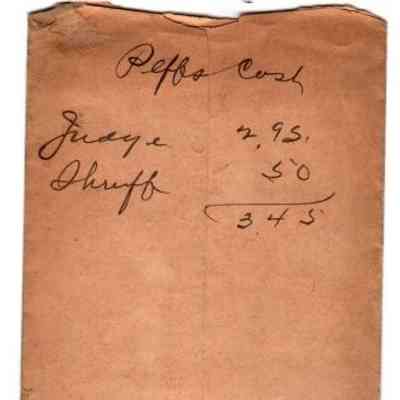 Peffs Cost
Judge 2.95.
Shruff 50
3.45